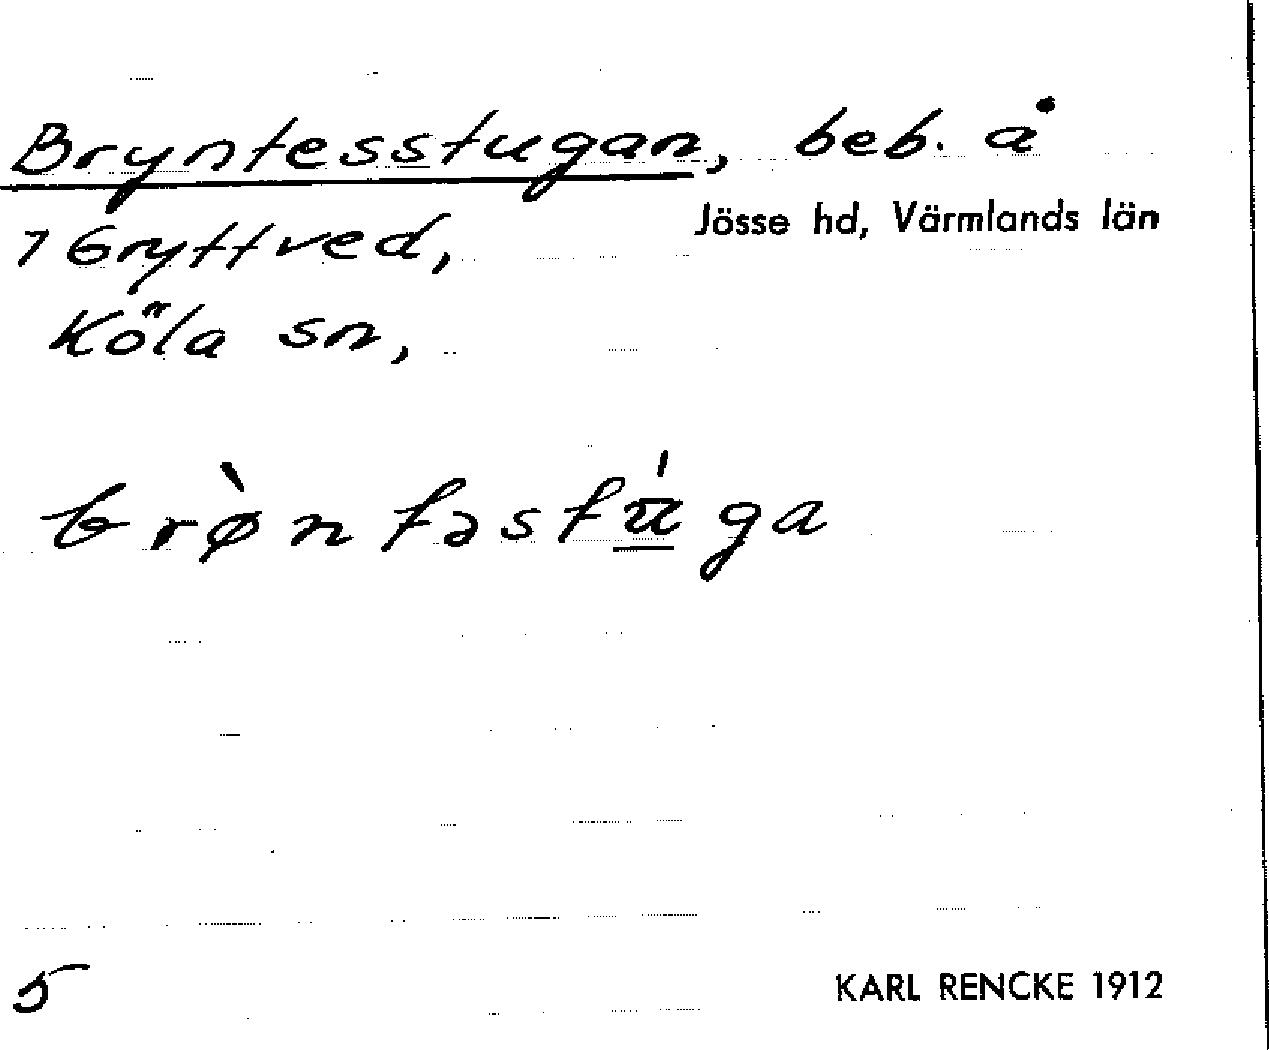 Bryntesstugan, beb. å
7 Gryttved,
Jösse hd, Värmlands län
Köla sn,
brø̀ntəstú̲ga
5
KARL RENCKE 1912